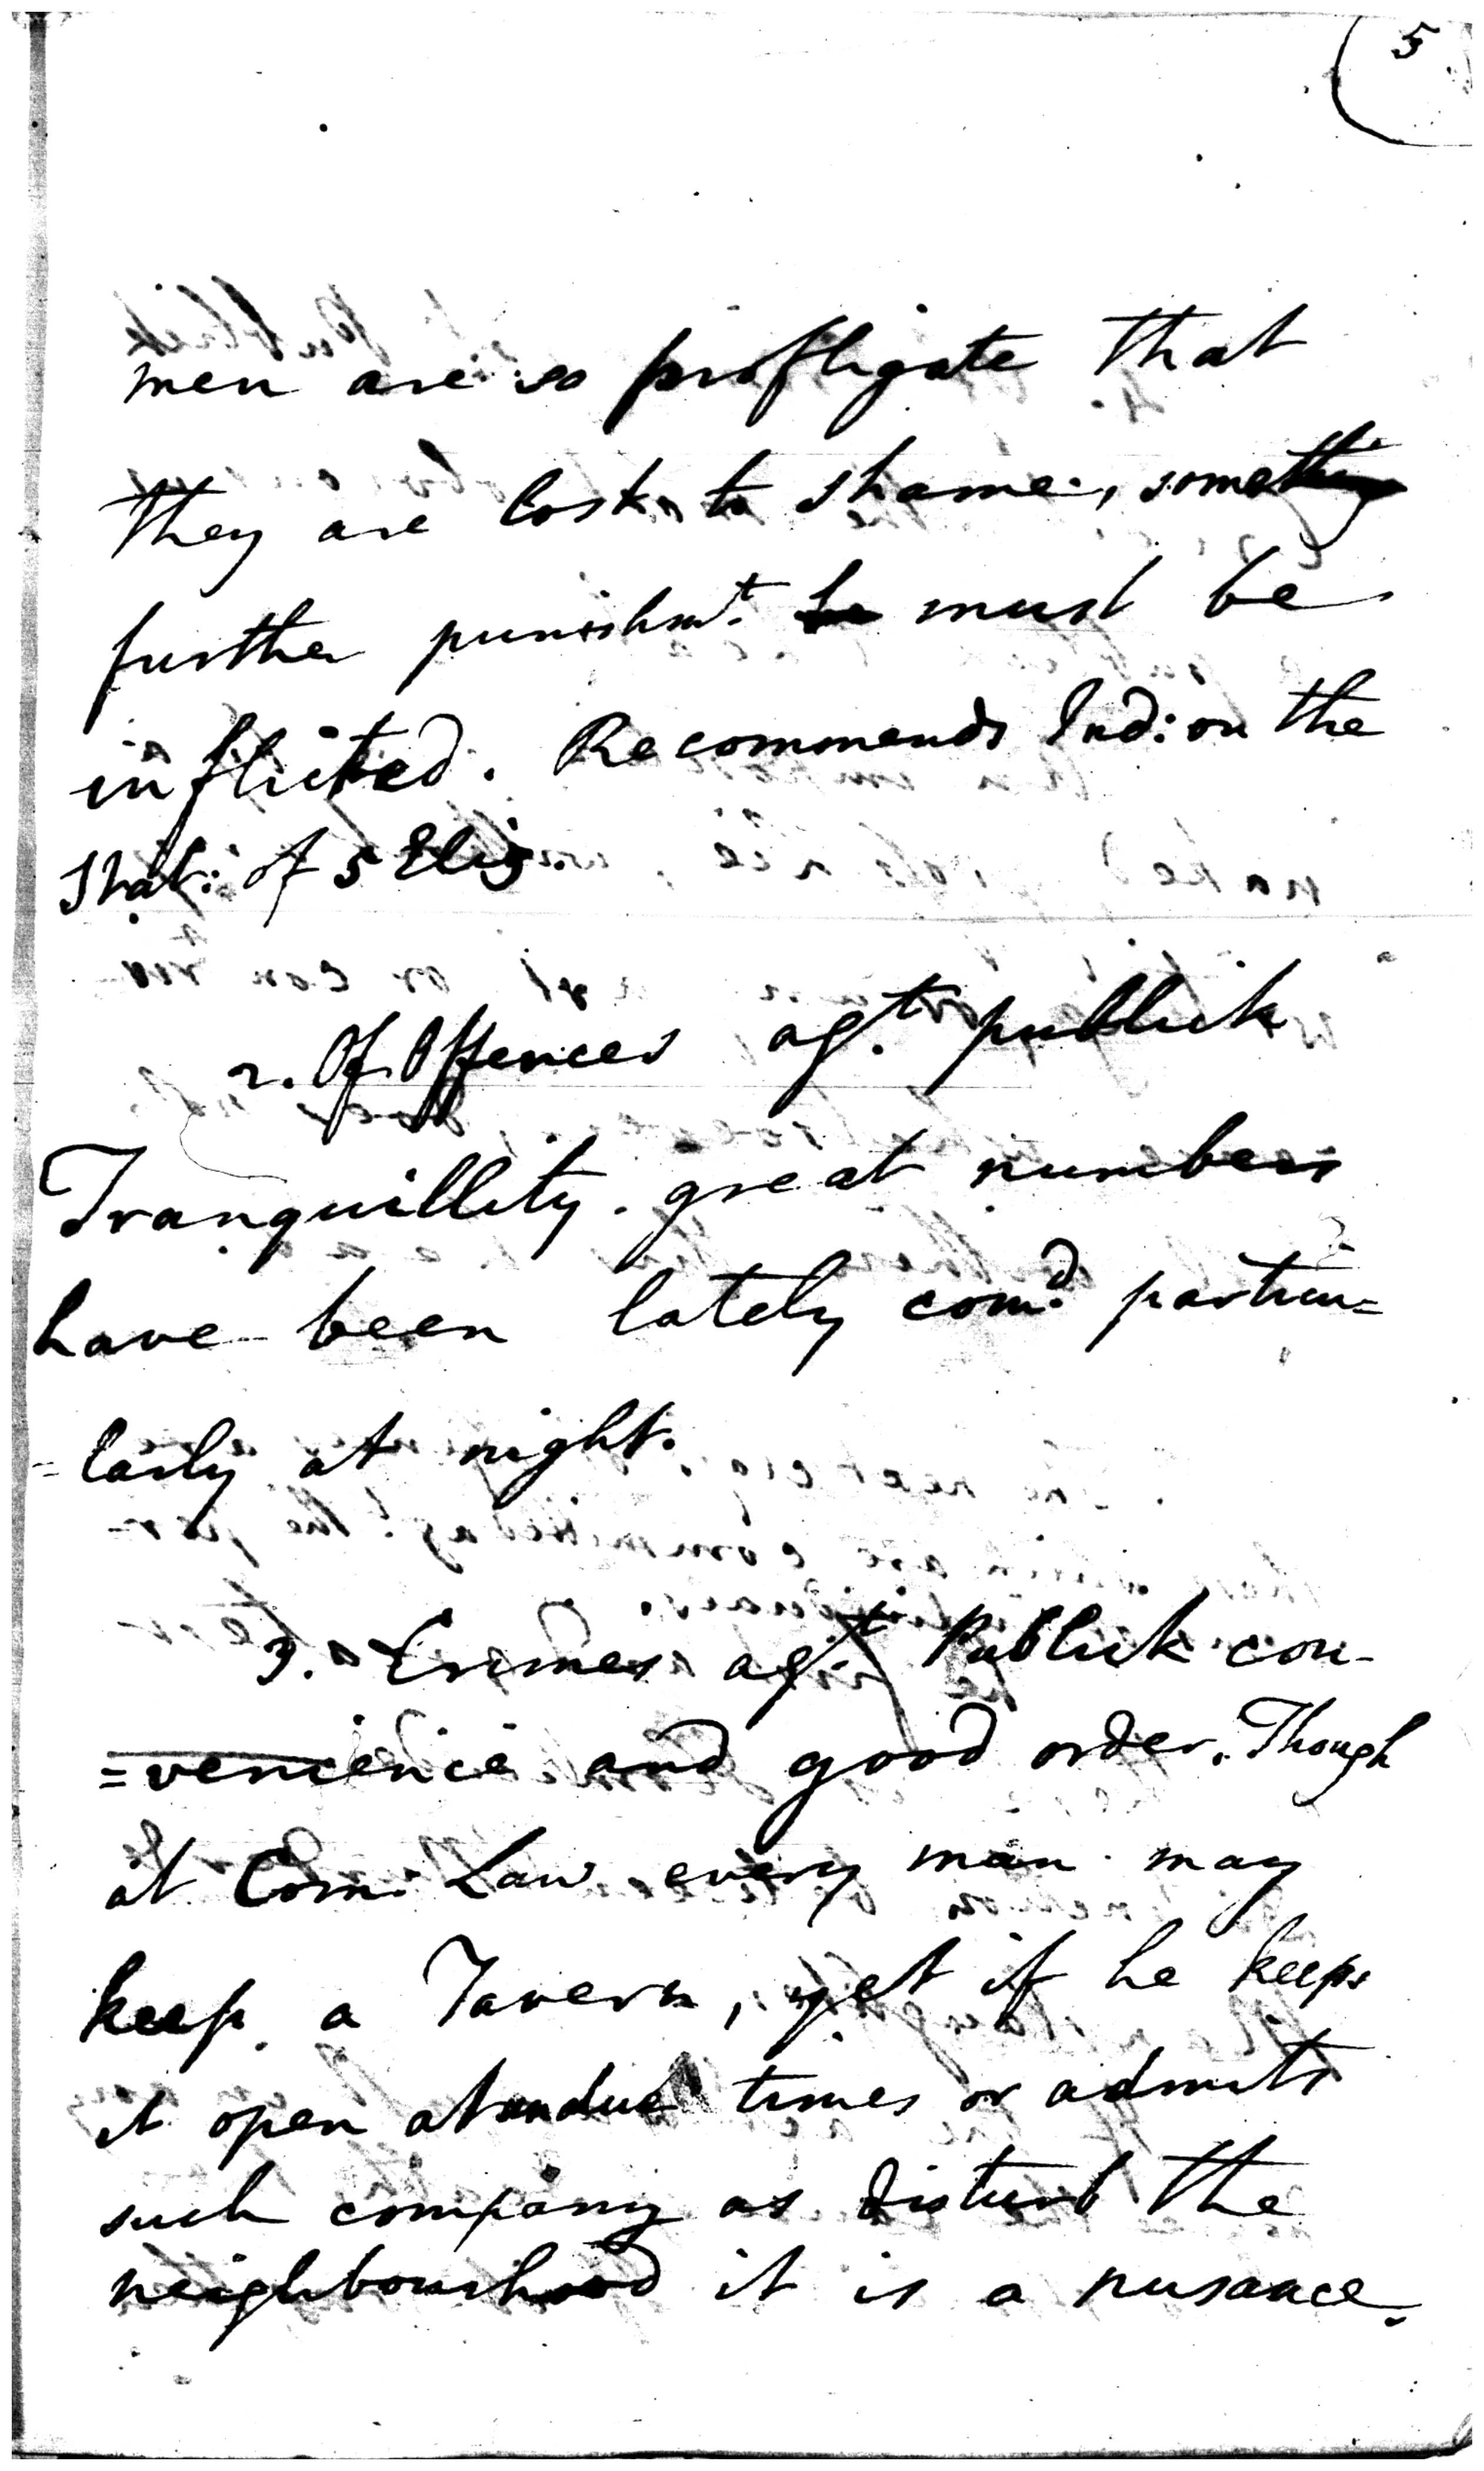 5
men are so profligate that
they are lost to shame, something
further punishmt. must be
inflicted. Recommends Ind: on the
Stat: of 5 Eliz.
2. Of Offences agt. publick
Tranquillity. great numbers
have been lately comd. particu=
=larly at night.
3. Crimes agt. Publick con-
=venience and good order. Though
at Com: Law every man may
keep a Tavern, yet if he keeps
it open at undue times or admits
such company as disturb the
neighbourhood it is a nusance.